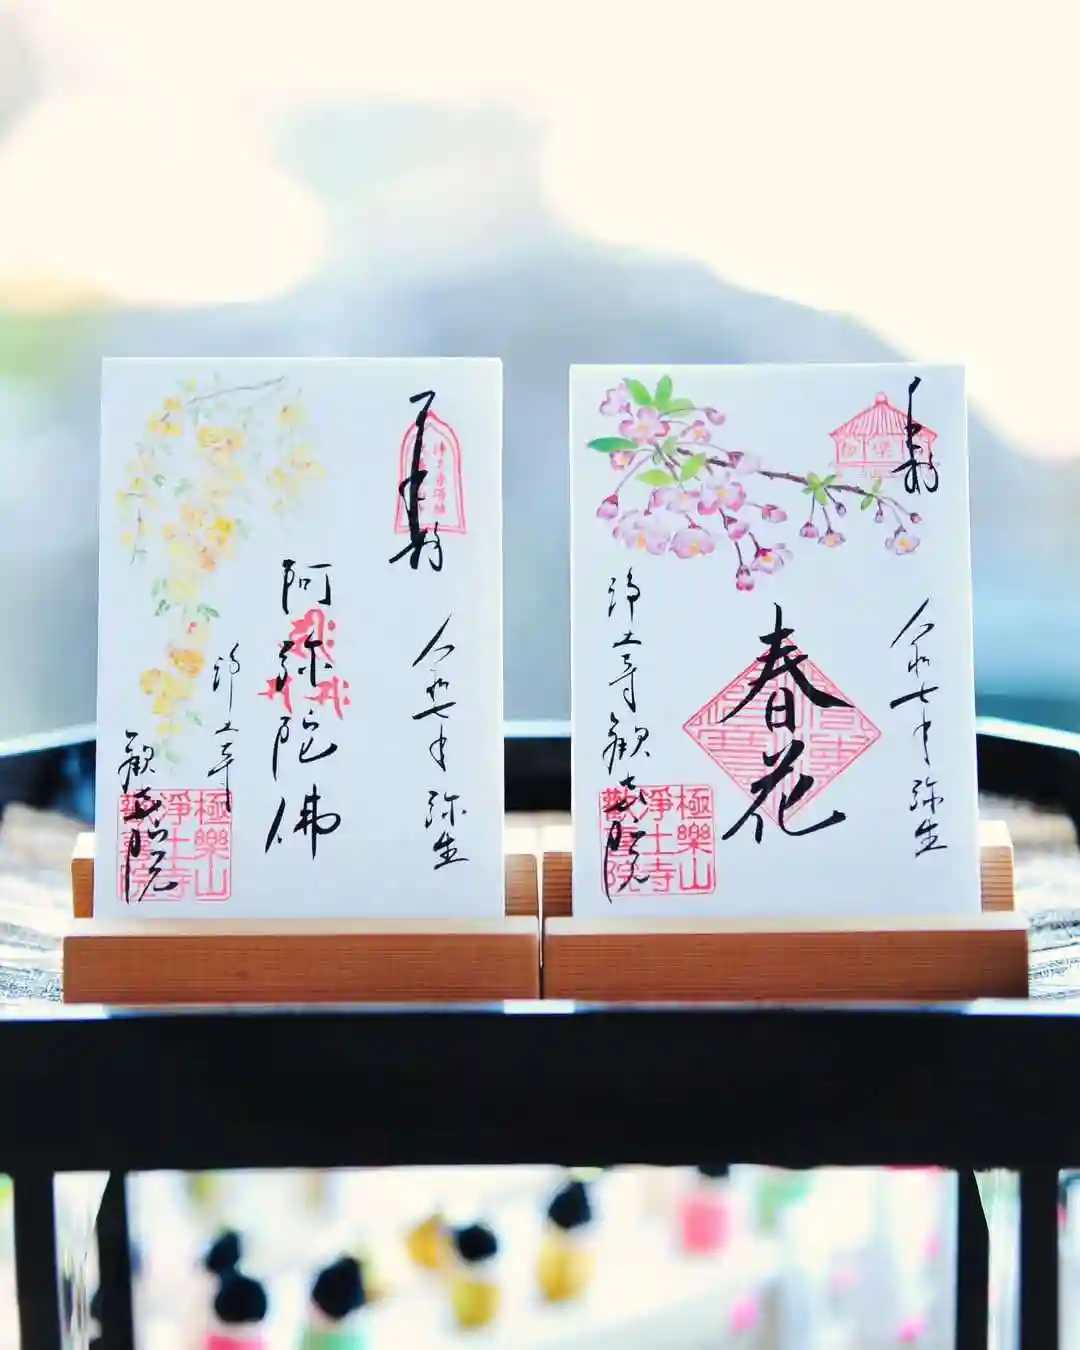 奉拝
阿弥陀佛
令和七年 弥生
浄土寺
歓喜院
極樂山
淨土寺
歡喜院
奉拝
春花
令和七年 弥生
浄土寺 観喜院
極樂山
淨土寺
歡喜院